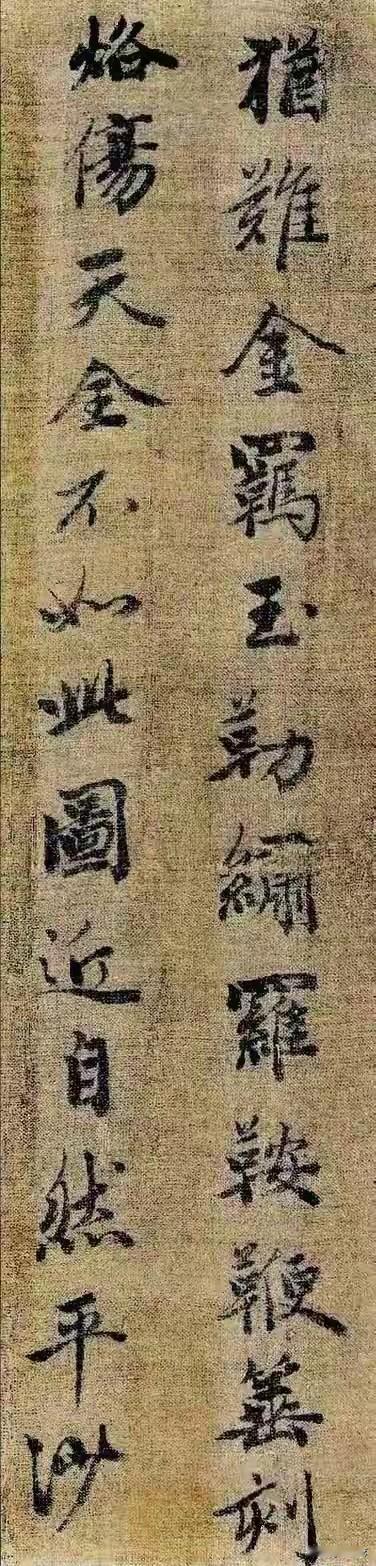 猶難金羈玉勒繡羅鞍鞭箠刻
烙傷天全不如此圖近自然平沙